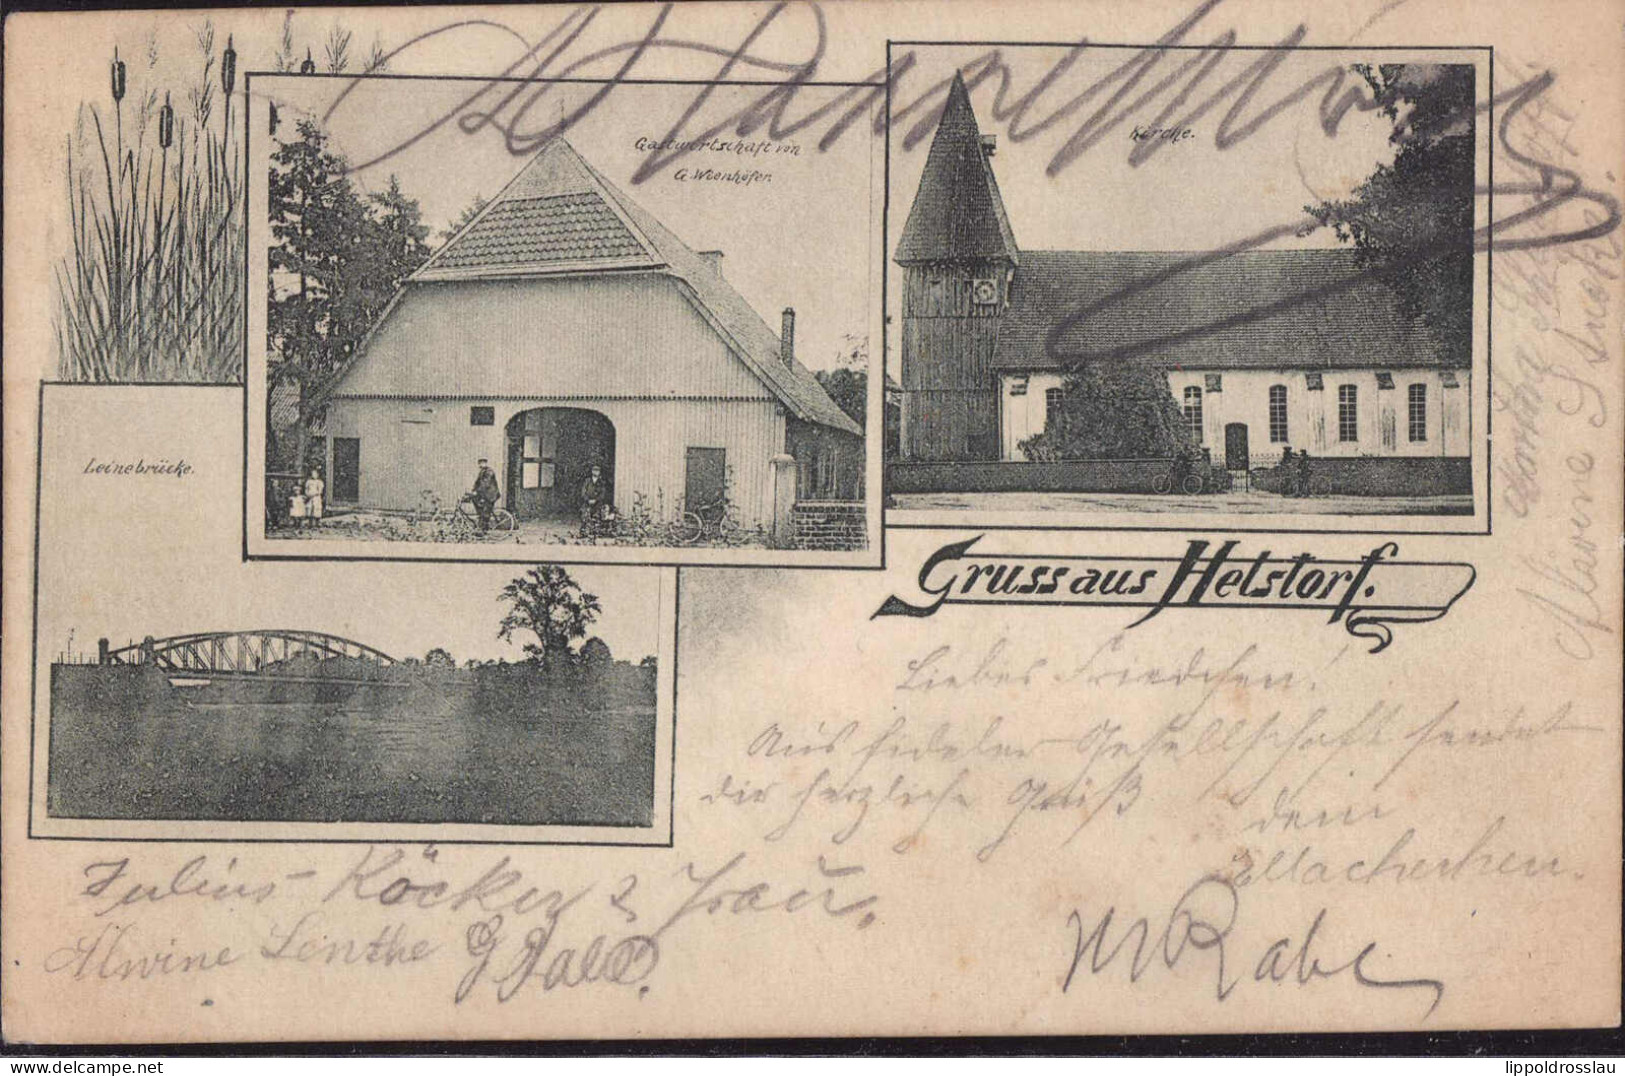 Gastwirtschaft von
G. Wienhöfer.
Kirche.
Leinebrücke.
Gruss aus Helstorf.
Liebes Friedchen!
Aus fideler Gesellschaft sendet
dir herzliche Grüß
dein
Julius Köcker & Frau.
Alwine Linthe
W Rabe
Martha
lippoldrosslau